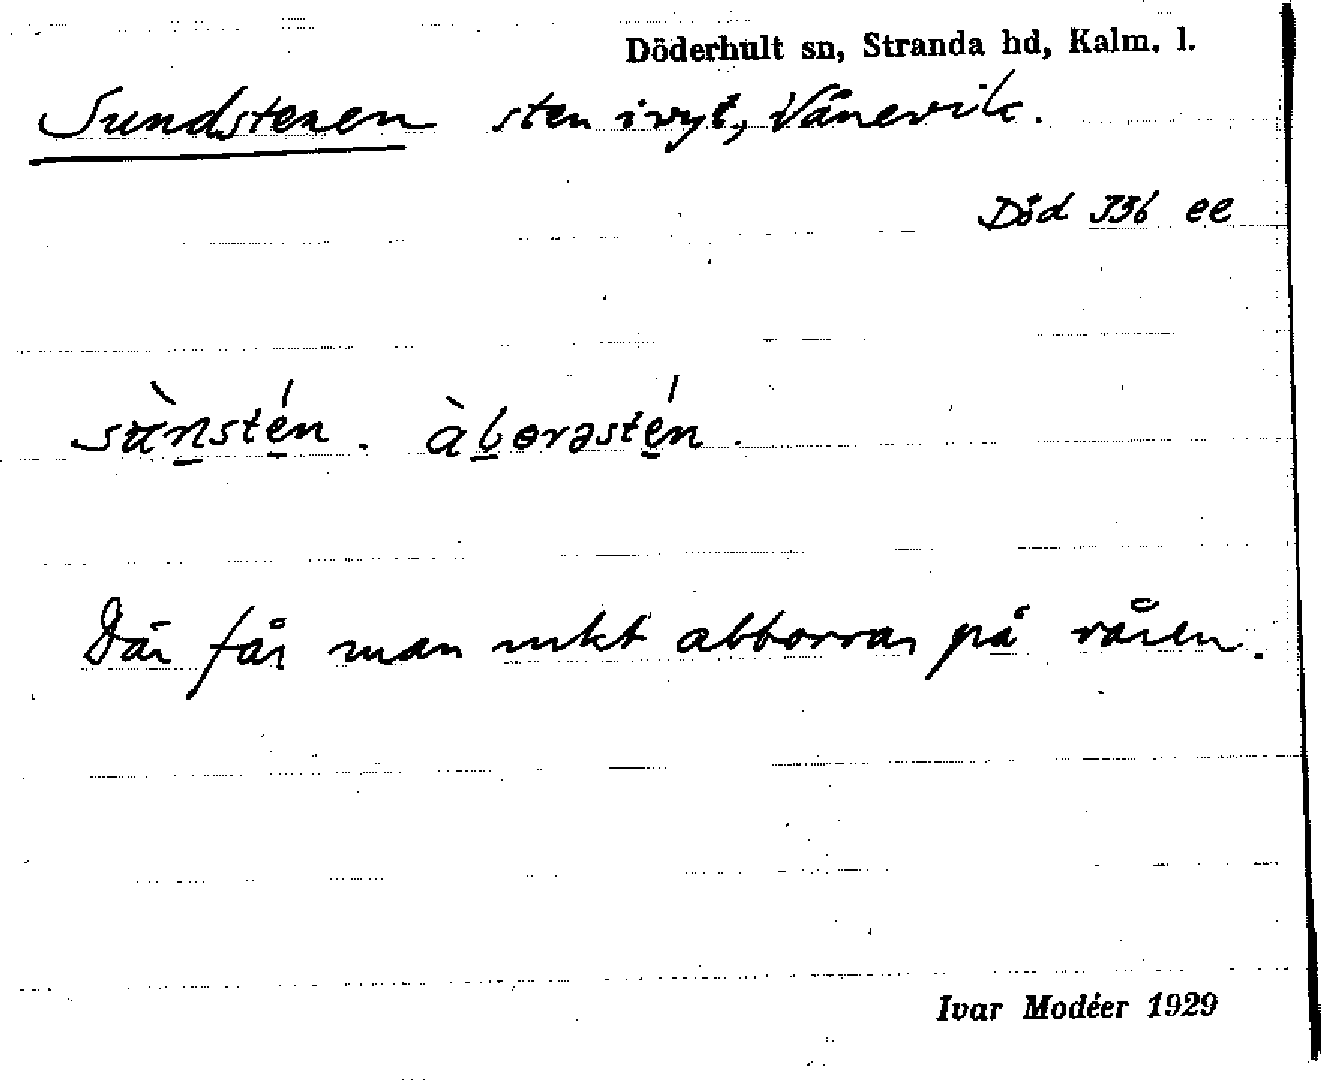 Döderhult sn, Stranda hd, Kalm. l.
Sundstenen sten i vyt, Vånevik.
Död J36 ee
sùnstén. àbɵrəstén.
Där får man mkt abborrar på våren.
Ivar Modéer 1929